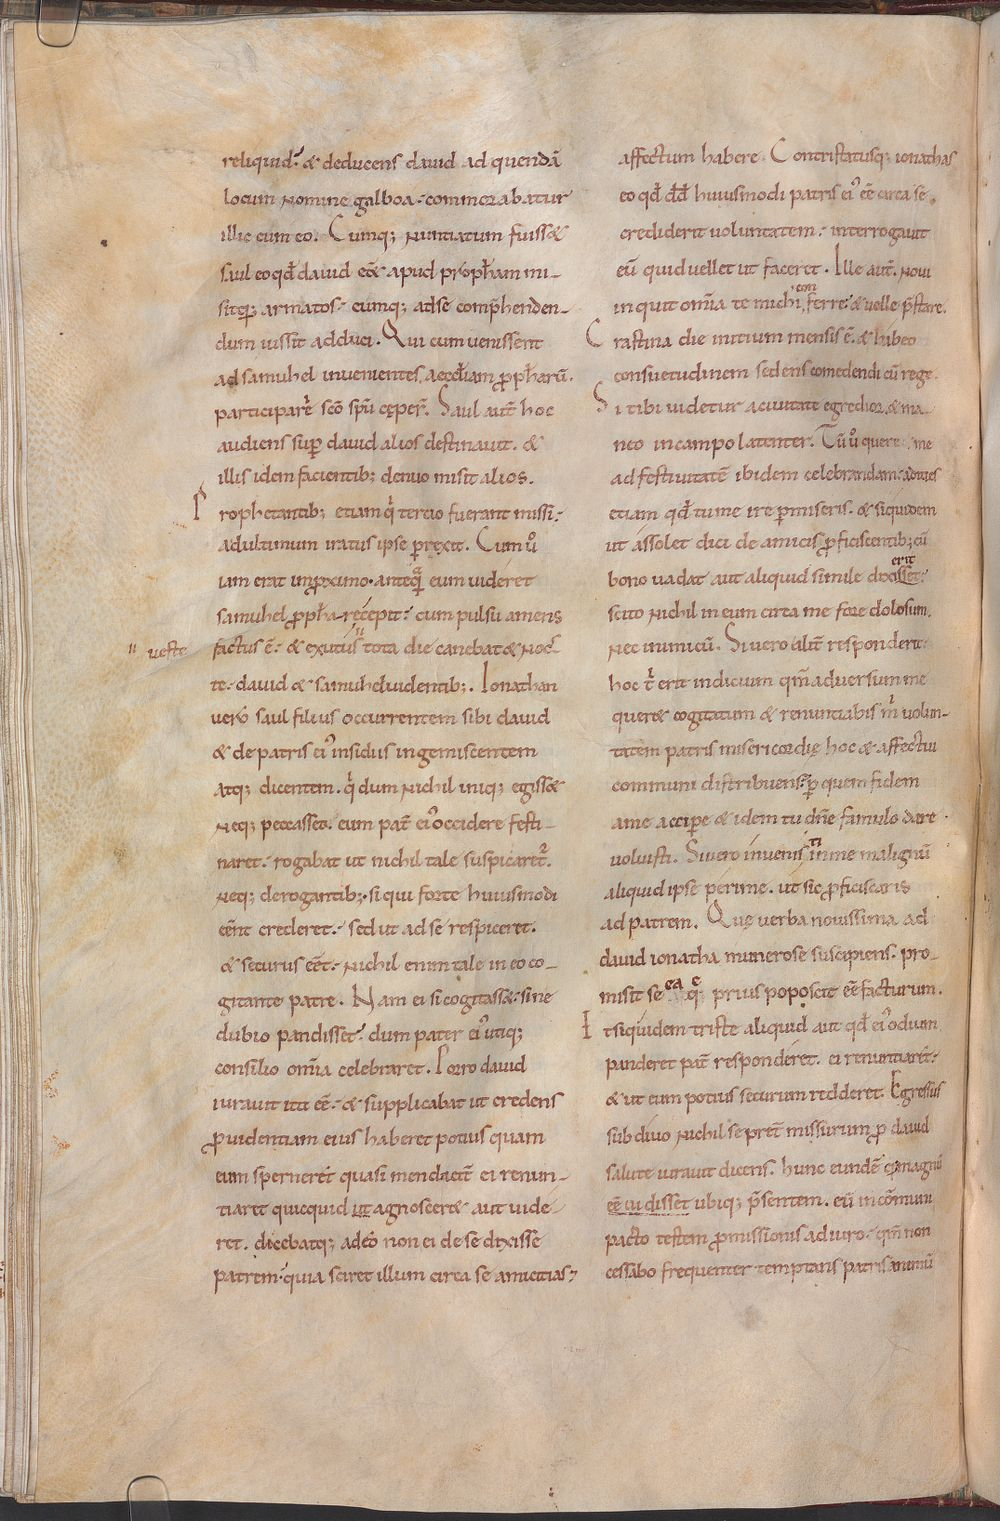 reliquid: & deducens dauid ad quendā
locum nomine galboa: commorabatur
illic cum eo. Cumq; nuntiatum fuiss&
saul eo qđ dauid ess& apud prophetam mi-
sitq; armatos: eumq; ad se comp̄henden-
dum iussit adduci. Qui cum uenissent
ad samuhel inuenientes aecclesiam ꝓph&arū.
participare sc̄o sp̄u cęper̄. Saul aut̄ hoc
audiens sup dauid alios destinauit. &
illis idem facientib; denuo misit alios.
Prophetantib; etiam q̇ tercio fuerant missi:
ad ultimum iratus ipse ꝑrexit. Cum ů
iam erat in ꝓximo. anteq̄ eum uideret
samuhel ꝓph̄a recepit: cum pulsu amens
" ueste
factus ē: & exutus " tota die canebat & noc-
te: dauid & samuhel uidentib;. Ionathan
uero saul filius occurrentem sibi dauid
& de patris ei' insidiis ingemiscentem
atq; dicentem. q̇ dum nichil iniq; egiss&
neq; peccasset. eum pat̄ ei' occidere festi-
naret: rogabat ut nichil tale suspicaret̄.
neq; derogantib; si qui forte huiusmodi
eēnt crederet: sed ut ad se respiceret.
& securus eēt: nichil enim tale in eo co-
gitante patre. Nam ei si cogitass&: sine
dubio pandisset. dum pater ei' utiq;
consilio om̄ia celebraret. Porro dauid
iurauit ita eē: & supplicabat ut credens
ꝓuidentiam eius haberet potius quam
eum sperneret quasi mendacē ei renun-
tiaret quicquid ut agnoscer& aut uide-
ret. dicebatq; adeo non ei de se dixisse
patrem. quia sciret illum circa se amicitias;
affectum habere. Contristatusq; ionathas
eo qđ dđ huiusmodi patris ei' eē circa se
crediderit uoluntatem: interrogauit
eū quid uellet ut faceret. Ille aut̄. noui
inquit om̄ia te michi con ferre & uelle p̄stare.
Crastina die initium mensis ē. & habeo
consuetudinem sedens comedendi cū rege.
Si tibi uidetur a ciuitate egredior. & ma-
neo in campo latenter. Tu ů quere me
ad festiuitatē ibidem celebrandam:
etiam qđ tu me ire ꝑmiseris. & siquidem
ut assolet dici de amicis ꝓficiscentib; cū
bono uadat aut aliquid simile dixisset: erit
scito nichil in eum circa me fore dolosum.
nec inimicū. Si uero alit̄ responderit:
hoc t̄ erit indicium qm̄ aduersum me
quer& cogitatum & renuntiabis m̄ uolun-
tatem patris misericordię hoc & affectui
communi distribuens: ꝑ quem fidem
a me accipe & idem tu dn̄e famulo dare
uoluisti. Si uero inuenis ti in me malignū
aliquid ipse perime. ut sic ꝓficiscaris
ad patrem. Quę uerba nouissima ad
dauid ionatha munerose suscipiens. pro-
misit se ea q̨ prius poposcit eē facturum.
Et siquidem triste aliquid aut qđ ei' odium
panderet pat̄ responderet. ei renuntiaret:
& ut eum potius securum redderet. Egressus
sub diuo nichil se pret̄missurum ꝓ dauid
salute iurauit dicens. hunc eundē magnū
eē cui disset ubiq; p̄sentem. eū in cōmuni
pacto testem ꝓmissionis adiuro: qm̄ non
cessabo frequenter temptans patris animū